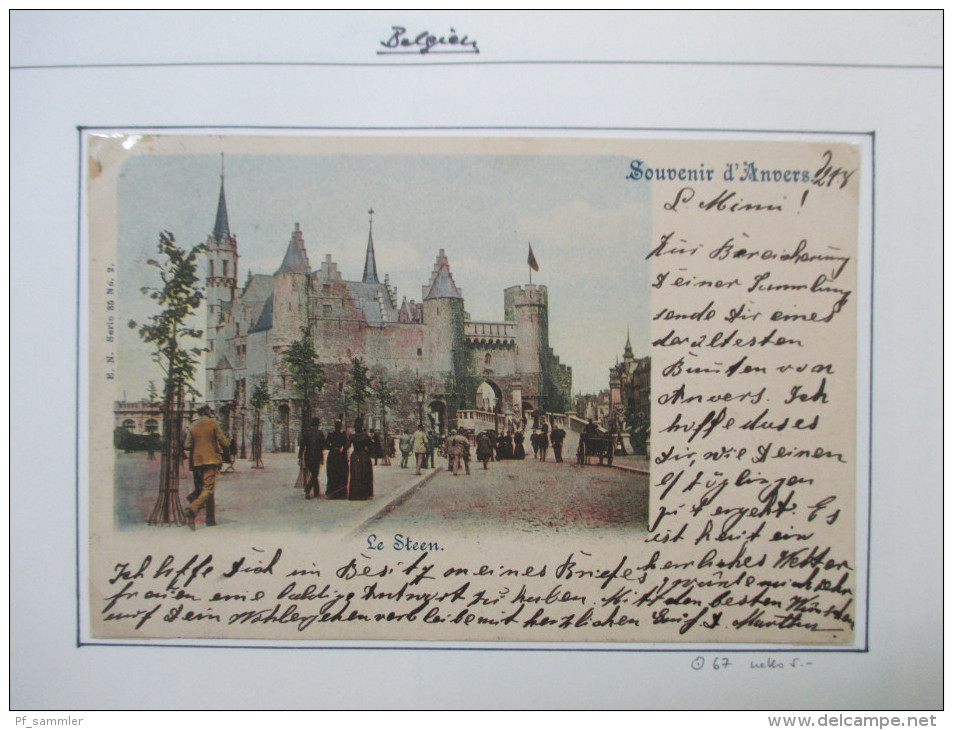 Belgien
Souvenir d'Anvers.
21.8
L. Mimi!
Zur Bereicherung
Deiner Sammlung
sende Dir eines
der ältesten
Bauten von
Anvers. Ich
hoffe dass es
Dir, wie Deinen
zut ergeht. Es
ist heut ein
herrliches Wetter
E. N. Serie 85 No. 2.
Le Steen.
Ich hoffe Dich im Besitz meines Briefes, würde mich sehr
freuen eine baldige Antwort zu haben. Mit den besten Wünschen
auf Dein Wohlergehen verbleibe mit herzlichen Gruß
67
Pf_sammler
www.delcampe.net